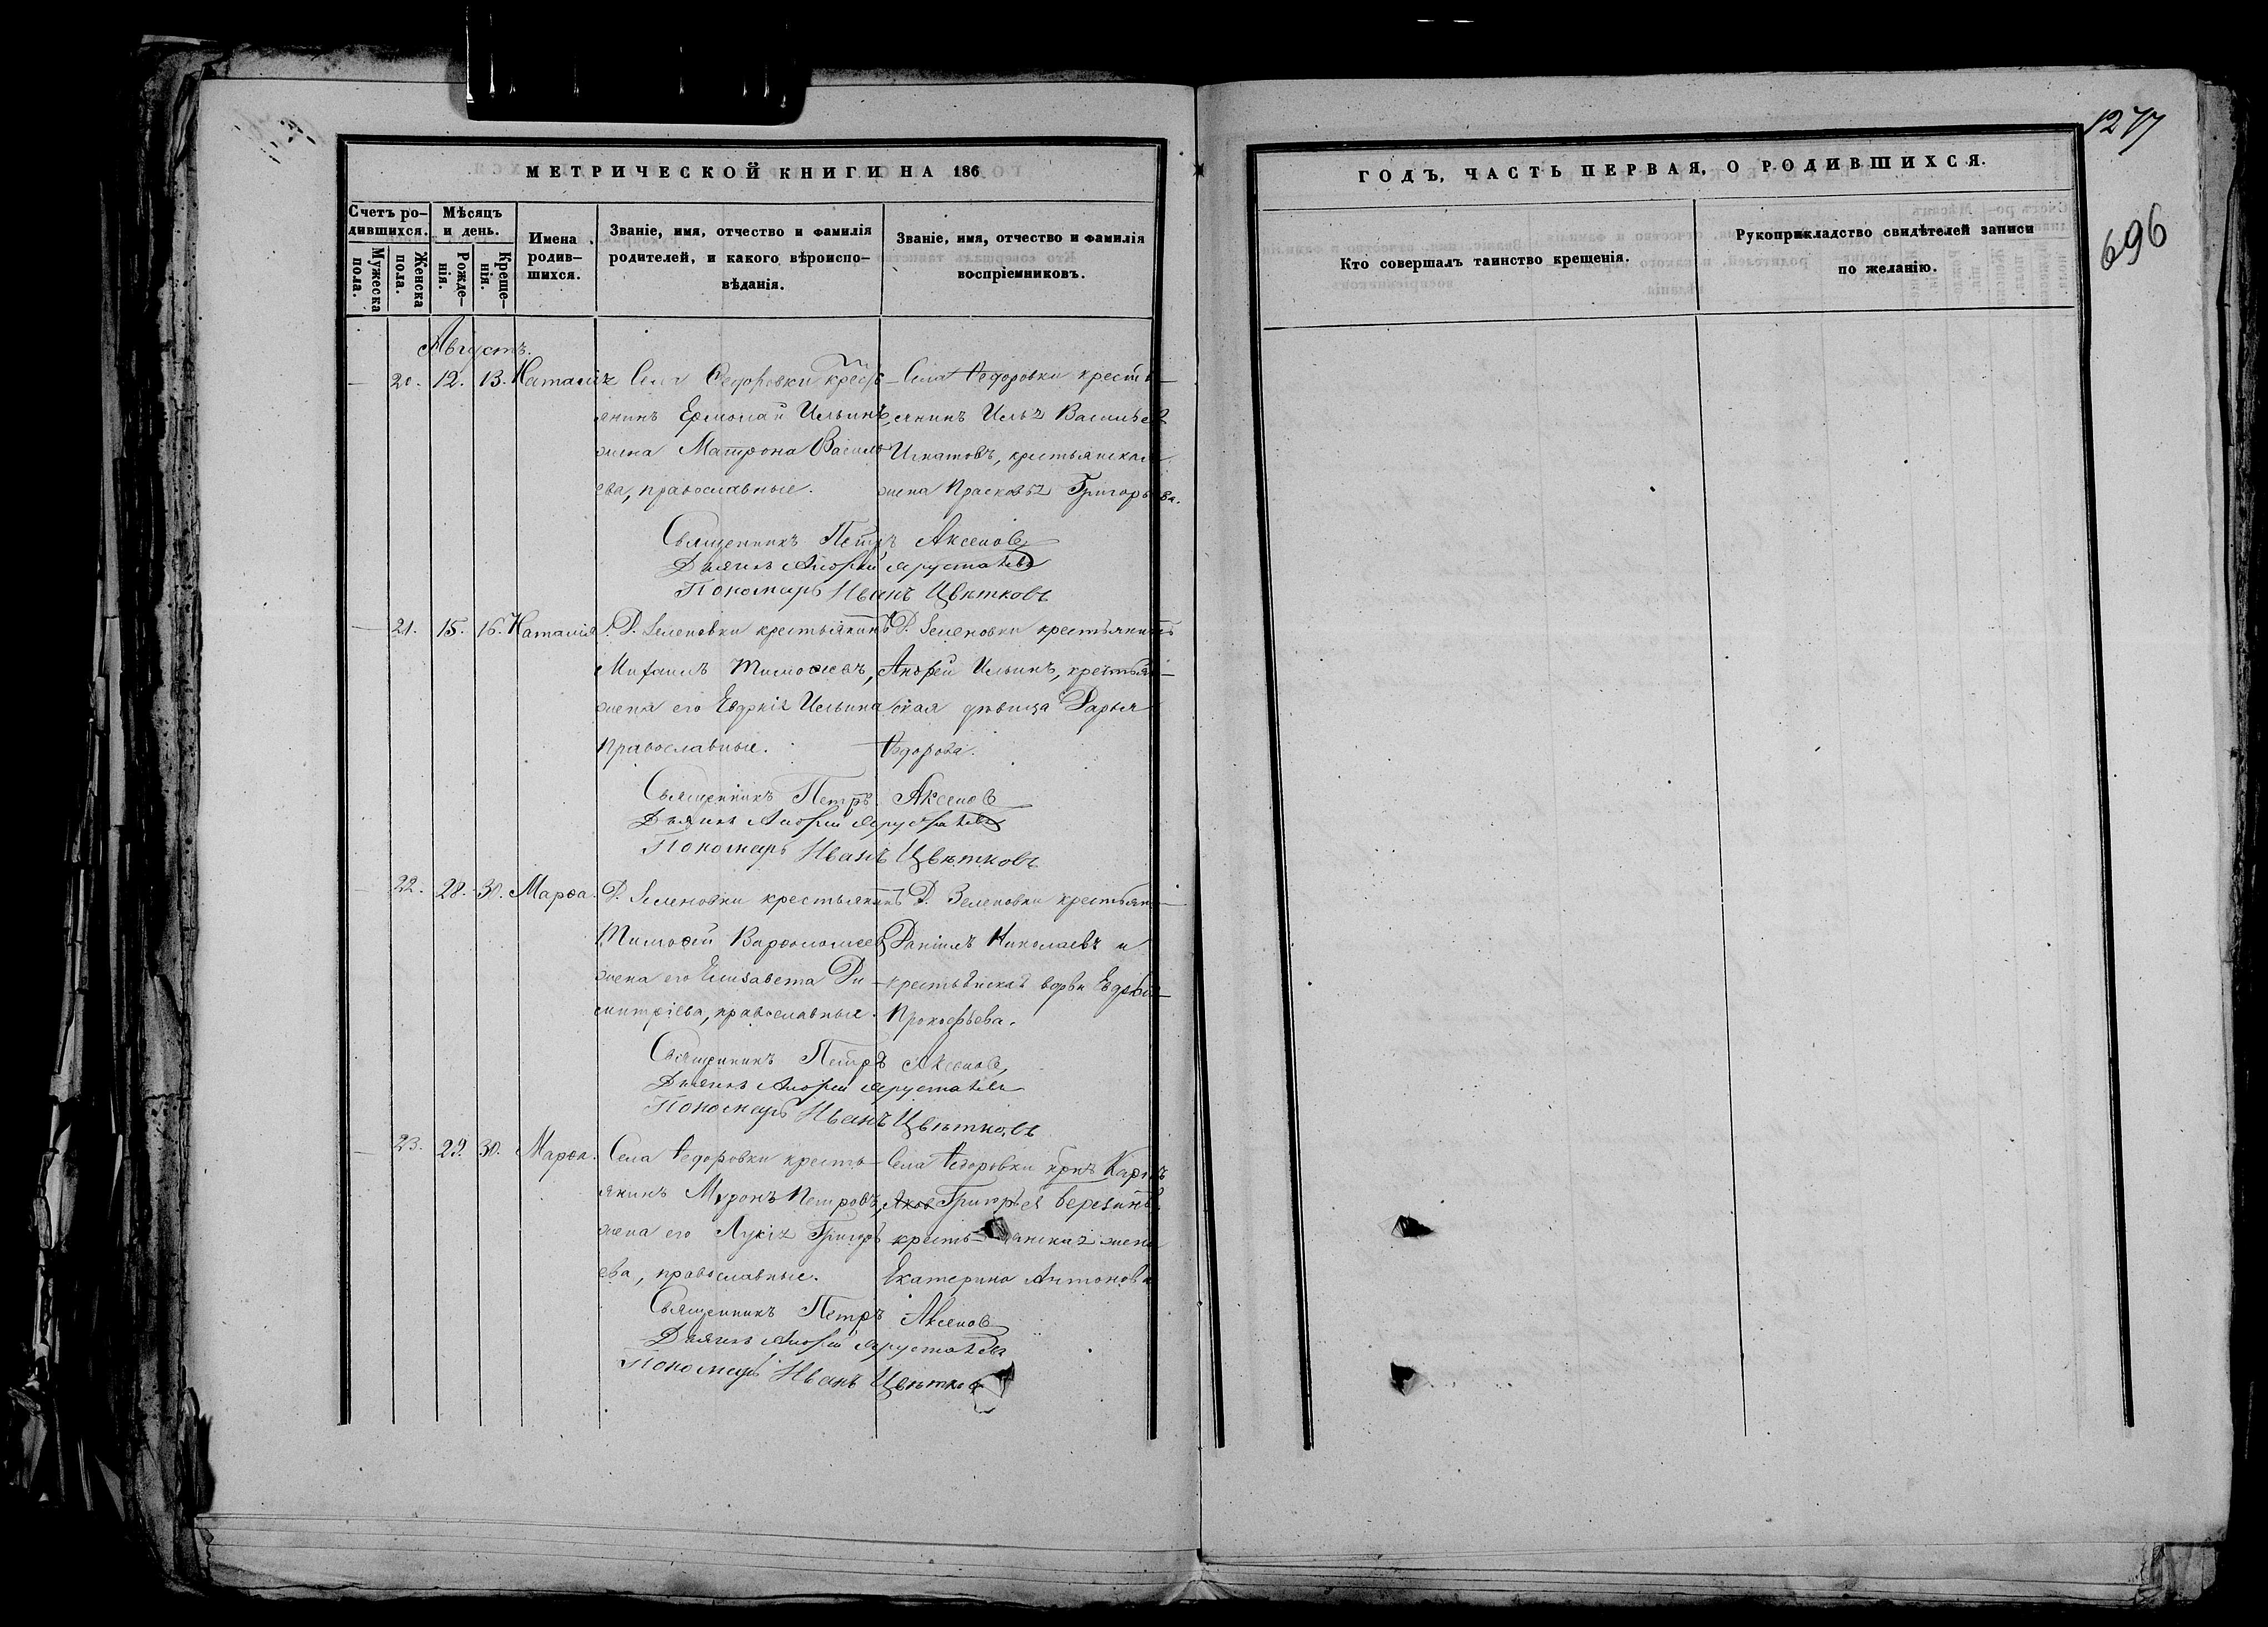 1277
696
МЕТРИЧЕСКОЙ КНИГИ НА 186
ГОДЪ, ЧАСТЬ ПЕРВАЯ, О РОДИВШИХСЯ.
Счетъ родившихся.
Мужеска пола.
Женска пола.
Мѣсяцъ и день.
Рожденія.
Крещенія.
Имена родившихся.
Званіе, имя, отчество и фамилія
родителей, и какого вѣроиспо-
вѣданія.
Званіе, имя, отчество и фамилія
воспріемниковъ.
Кто совершалъ таинство крещенія.
Рукоприкладство свидѣтелей записи
по желанію.
Августъ.
20. 12. 13. Наталія
Села Ѳедоровки кресть-
янинъ Ермолай Ильинъ,
жена Матрона Василь-
ева, православные.
Села Ѳедоровки кресть-
янинъ Илья Васильевъ
Игнатовъ, крестьянская
жена Прасковья Григорьева.
Священникъ Петръ Аксенов
Дьячекъ Андрей
Пономарь Иванъ Цвѣтковъ
21. 15. 16. Наталія.
Д. Зеленовки крестьянинъ
Михаилъ Тимоѳеевъ,
жена его Евдокія Ильина
православные.
Д. Зеленовки крестьянинъ
Андрей Ильинъ, крестьян-
ская дѣвица Дарья
Ѳедорова.
Священникъ Петръ Аксенов
Дьячекъ Андрей
Пономарь Иванъ Цвѣтковъ
22. 28. 30. Марѳа.
Д. Зеленовки крестьянинъ
Тимоѳей Варѳоломеев,
жена его Елизавета Ди-
митріева, православные.
Д. Зеленовки крестьян-
Даніилъ Николаевъ и
крестьянская вдова Евдокія
Прокофьева.
Священникъ Петръ Аксенов,
Дьячекъ Андрей
Пономарь Иванъ Цвѣтковъ
23. 29. 30. Марѳа.
Села Ѳедоровки кресть-
янинъ Миронъ Петровъ,
жена его Лукія Григорь-
ева, православные.
Села Ѳедоровки крнъ Карпъ
Григорьев Березинъ,
кресть-янская жена
Екатерина Антонова
Священникъ Петръ Аксенов
Дьячекъ Андрей
Пономарь Иванъ Цвѣтков